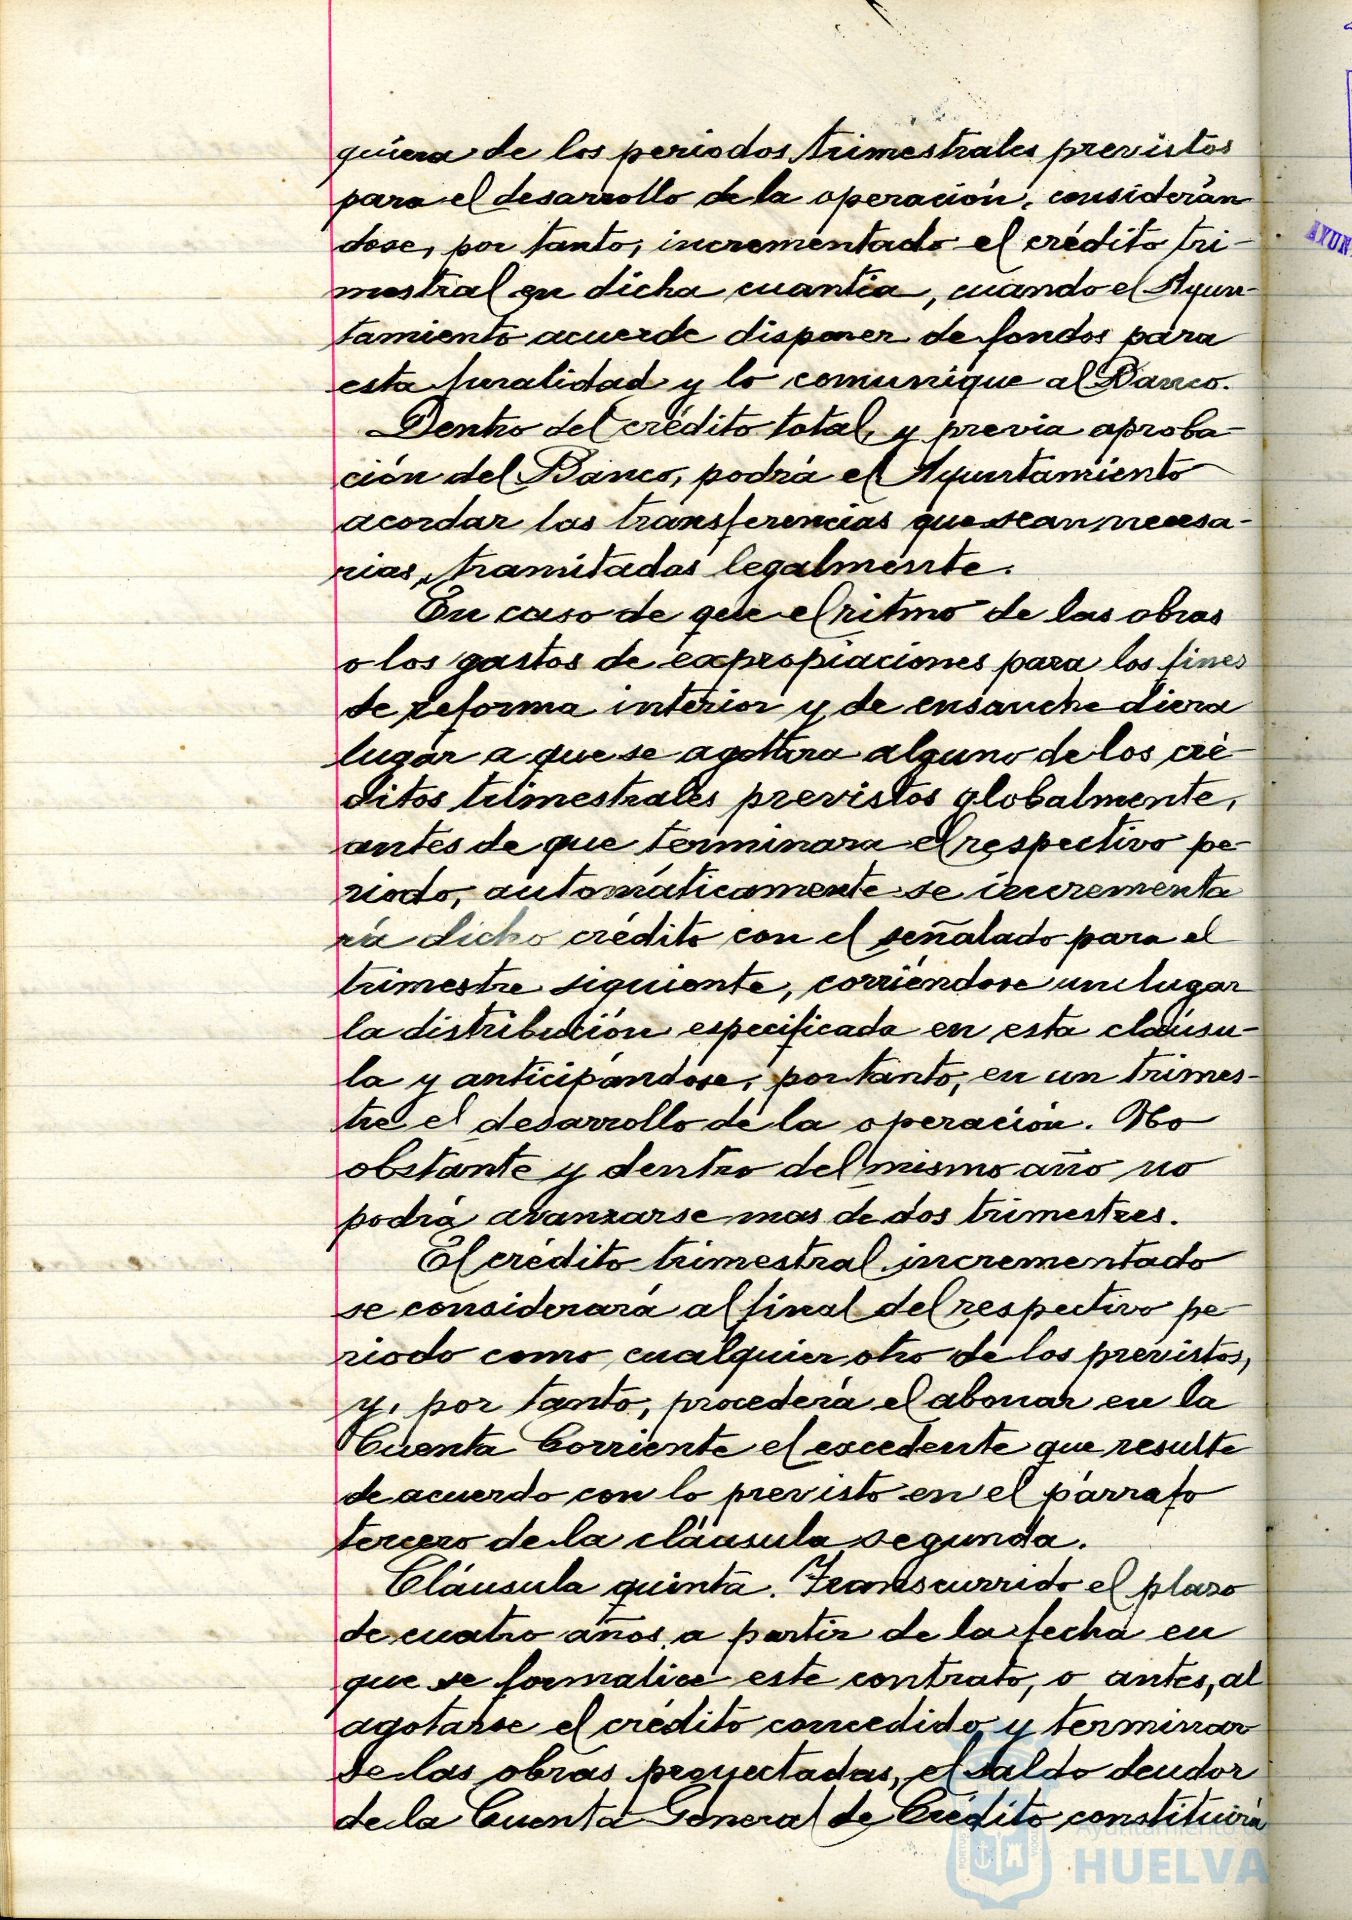 quiera de los periodos trimestrales previstos
para el desarrollo de la operación, considerán
dose, por tanto, incrementado el crédito tri-
mestral en dicha cuantía, cuando el Ayun-
tamiento acuerde disponer de fondos para
esta finalidad y lo comunique al Banco.
Dentro del crédito total, y previa aproba-
ción del Banco, podrá el Ayuntamiento
acordar las transferencias que sean necesa-
rias, tramitadas legalmente.
En caso de que el ritmo de las obras
o los gastos de expropiaciones para los fines
de reforma interior y de ensanche diera
lugar a que se agotara alguno de los cré-
ditos trimestrales previstos globalmente,
antes de que terminara el respectivo pe-
riodo, automáticamente se incrementa
rá dicho crédito con el señalado para el
trimestre siguiente, corriéndose un lugar
la distribución especificada en esta cláusu-
la y anticipándose, por tanto, en un trimes-
tre el desarrollo de la operación. No
obstante y dentro del mismo año no
podrá avanzarse mas de dos trimestres.
El crédito trimestral incrementado
se considerará al final del respectivo pe-
riodo como cualquier otro de los previstos,
y, por tanto, procederá el abonar en la
Cuenta Corriente el excedente que resulte
de acuerdo con lo previsto en el párrafo
tercero de la cláusula segunda.
Cláusula quinta. Transcurrido el plazo
de cuatro años a partir de la fecha en
que se formalice este contrato, o antes, al
agotarse el crédito concedido y terminar
se las obras proyectadas, el saldo deudor
de la Cuenta General de Crédito constituirá
Ayuntamiento de
HUELVA
AYUN